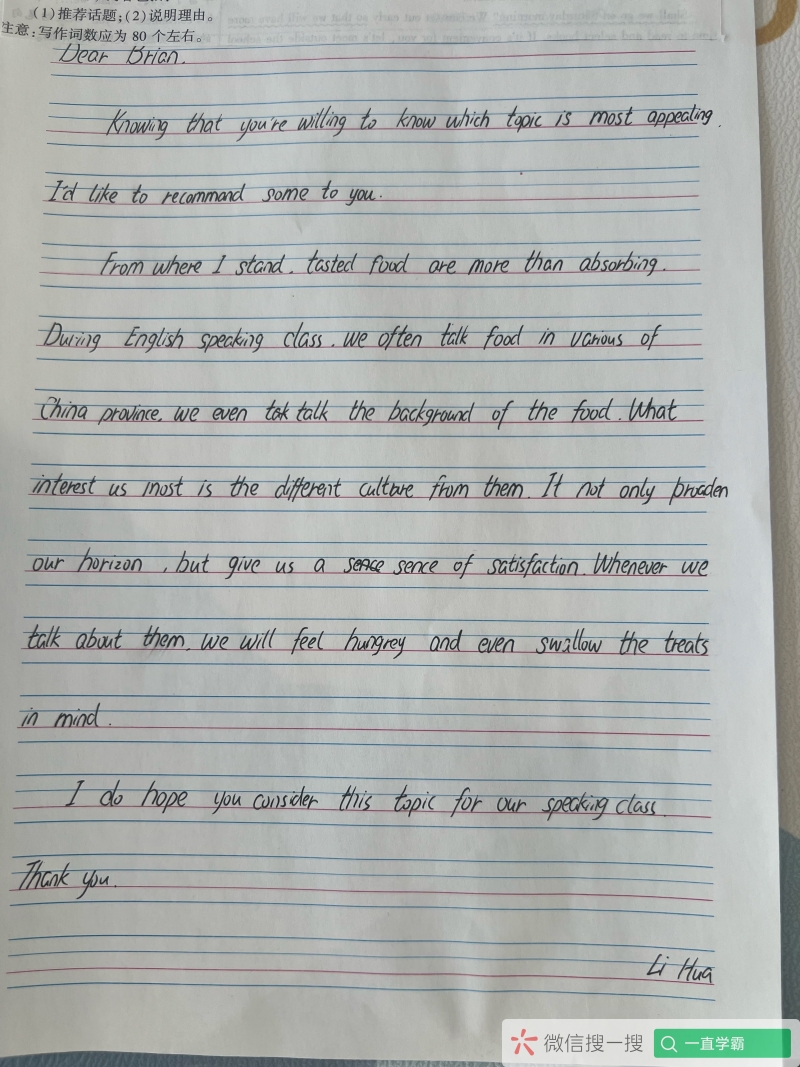 (1)推荐话题;(2)说明理由。
注意:写作词数应为 80 个左右。
Dear Brian.
Knowing that you're willing to know which topic is most appealing.
I'd like to recommand some to you.
From where I stand. tasted food are more than absorbing.
During English speaking class. we often talk food in various of
China province. we even tak talk the background of the food. What
interest us most is the different culture from them. It not only broaden
our horizon, but give us a sence of satisfaction. Whenever we
talk about them. we will feel hungrey and even swallow the treats
in mind.
I do hope you consider this topic for our speaking class.
Thank you.
Li Hua
微信搜一搜
一直学霸